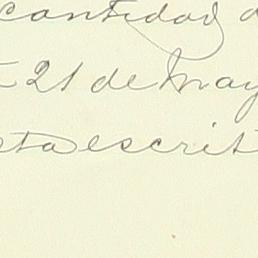 cantidad
21 de May
escrit